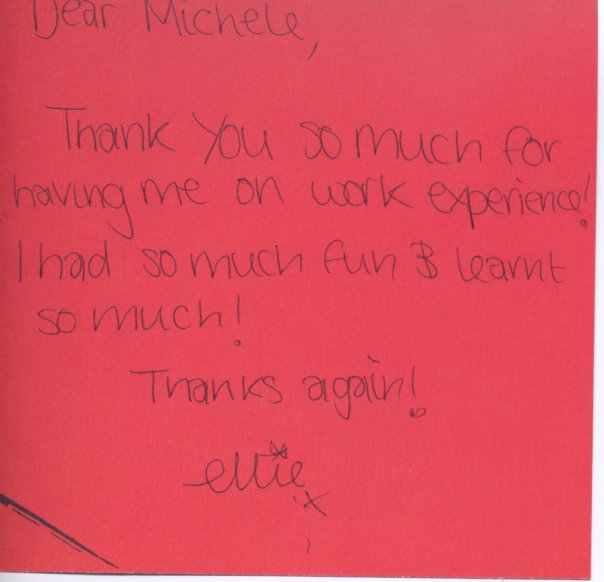 Dear Michele,
Thank You so much for
having me on work experience!
I had so much fun & learnt
so much!
Thanks again!
ellie x